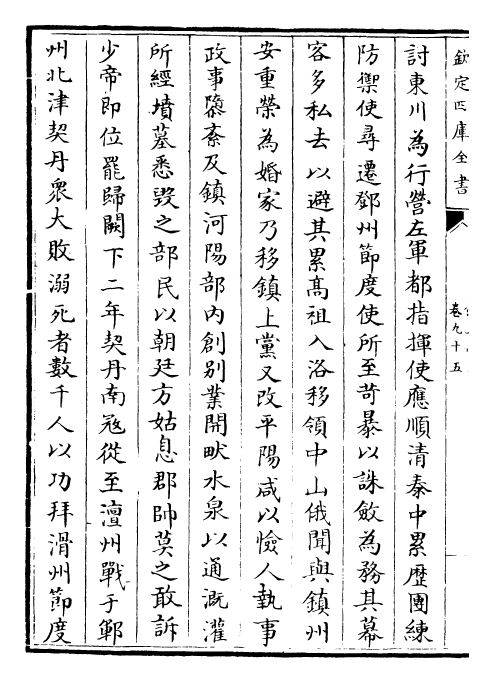 欽定四庫全書
卷九十五
討東川為行營左軍都指揮使應順清泰中累歷團練
防禦使尋遷鄧州節度使所至苛暴以誅斂為務其幕
客多私去以避其累髙祖入洛移領中山俄聞與鎮州
安重榮為婚家乃移鎮上黨又改平陽咸以憸人執事
政事隳紊及鎮河陽部内創别業開畎水泉以通溉灌
所經墳墓悉毁之部民以朝廷方姑息郡帥莫之敢訴
少帝即位罷歸闕下二年契丹南冦從至澶州戰于鄆
州北津契丹衆大敗溺死者數千人以功拜滑州節度